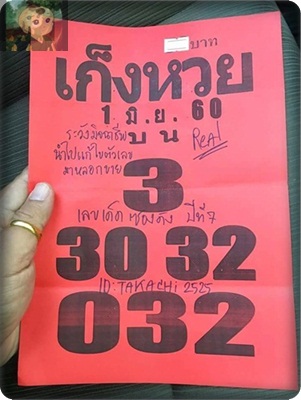 บาท
เก็งหวย
1 มิ.ย. 60
ระวังมิจฉาชีพ บน Real
นำไปแก้ไขตัวเลข
มาหลอกขาย
3
เลขเด็ดซองดัง ปีที่ 7
30 32
ID:TAKACHi 2525
032